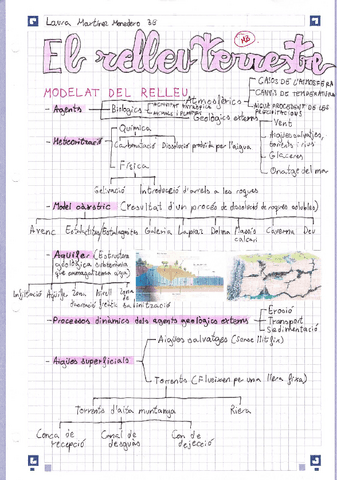 Laura Martínez Monedero 3B
MB
El relleu terrestre
MODELAT DEL RELLEU
GASOS DE L'ATMOSFERA
CANVIS DE TEMPERATURA
AIGUA PROCEDENT DE LES PRECIPITACIONS
- Agents
Atmosfèrics
Biològics
ANIMALS I PLANTES
Geològics externs
Vent
Aigües salvatges, torrents i rius
Glaceres
Onatge del mar
- Meteorització
Química
Carbonatació Dissolució produïda per l'aigua
Física
Gelivació Introducció d'arrels a les roques
- Model càrstic (resultat d'un procés de dissolució de roques solubles)
Avenc Estalactites/Estalagmites Galeria Lapiaz Dolina Massís calcari Caverna Deu
- Aqüífer (Estructura geològica subterrània que emmagatzema aigua)
Infiltració Aqüífer Zona Nivell Zona de
freàtic saturació
- Processos dinàmics dels agents geològics externs
Erosió
Transport
Sedimentació
- Aigües superficials
Aigües salvatges (Sense llit fix)
Torrents (Flueixen per una llera fixa)
Torrents d'alta muntanya Riera
Conca de recepció Canal de desguàs Con de dejecció